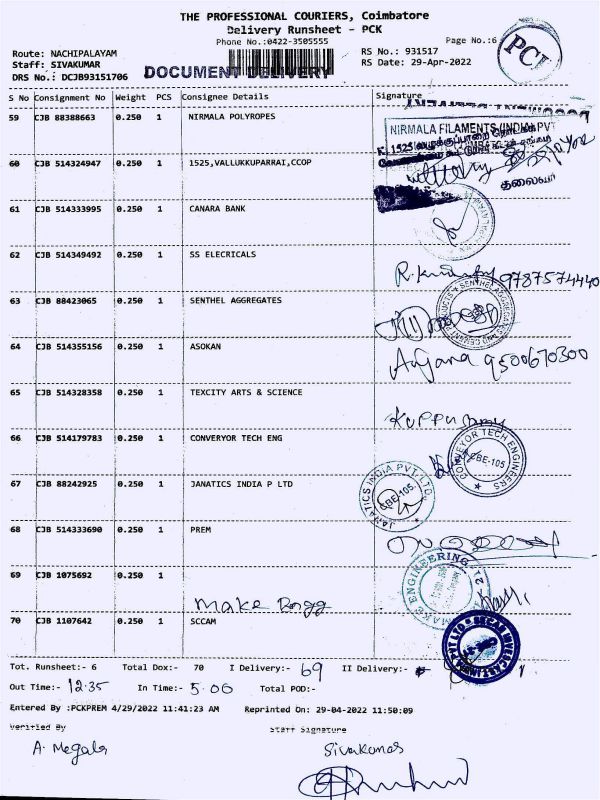 THE PROFESSIONAL COURIERS, Coimbatore
Delivery Runsheet - PCK
Phone No.:0422-3505555
Page No.:6
PCK
Route: NACHIPALAYAM
Staff: SIVAKUMAR
DRS No.: DCJB93151706
DOCUMENT DELIVERY
RS No.: 931517
RS Date: 29-Apr-2022
S No Consignment No Weight PCS Consignee Details Signature
59 CJB 88388663 0.250 1 NIRMALA POLYROPES
NIRMALA FILAMENTS (INDIA) PVT
60 CJB 514324947 0.250 1 1525,VALLUKKUPARRAI,CCOP
தலைவர்
61 CJB 514333995 0.250 1 CANARA BANK
62 CJB 514349492 0.250 1 SS ELECRICALS
9787574440
63 CJB 88423065 0.250 1 SENTHEL AGGREGATES
SENTHEL AGGREGATES AND CEMENT PRODUCTS
64 CJB 514355156 0.250 1 ASOKAN
Anjana 9500670300
65 CJB 514328358 0.250 1 TEXCITY ARTS & SCIENCE
66 CJB 514179783 0.250 1 CONVERYOR TECH ENG
CONVEYOR TECH ENGINEERS
CBE-105
67 CJB 88242925 0.250 1 JANATICS INDIA P LTD
JANATICS INDIA PVT. LTD.
CBE-105.
68 CJB 514333690 0.250 1 PREM
69 CJB 1075692 0.250 1
MAKE ENGINEERING
70 CJB 1107642 0.250 1 SCCAM
Tot. Runsheet:- 6 Total Dox:- 70 I Delivery:- 69 II Delivery:-
Out Time:- 12.35 In Time:- 5.00 Total POD:-
Entered By :PCKPREM 4/29/2022 11:41:23 AM Reprinted On: 29-04-2022 11:50:09
Verified By Staff Signature
A. Megala Sivakumar